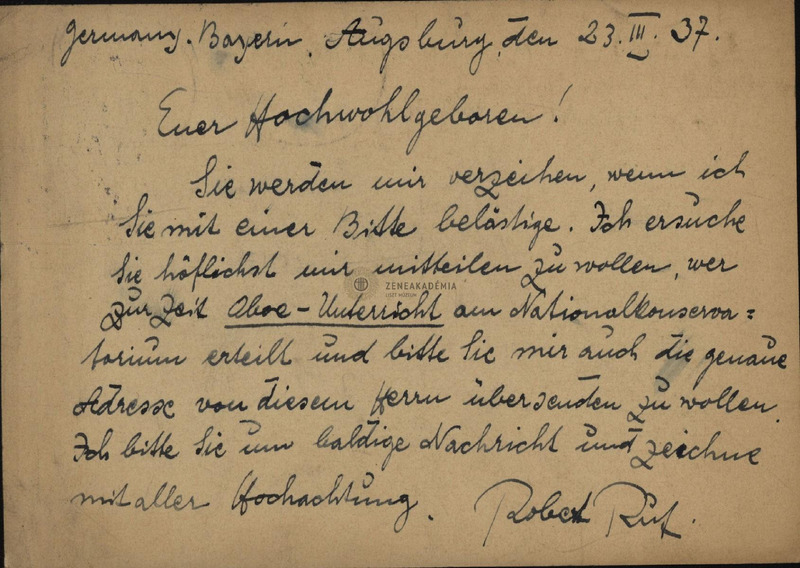 Germany. Bayern. Augsburg, den 23. III. 37.
Euer Hochwohlgeboren!
Sie werden mir verzeihen, wenn ich
Sie mit einer Bitte belästige. Ich ersuche
Sie höflichst mir mitteilen zu wollen, wer
ZENEAKADÉMIA
LISZT MÚZEUM
zur Zeit Oboe-Unterricht am Nationalkonserva=
torium erteilt und bitte Sie mir auch die genaue
Adresse von diesem Herrn übersenden zu wollen.
Ich bitte Sie um baldige Nachricht und zeichne
mit aller Hochachtung. Robert Ruf.